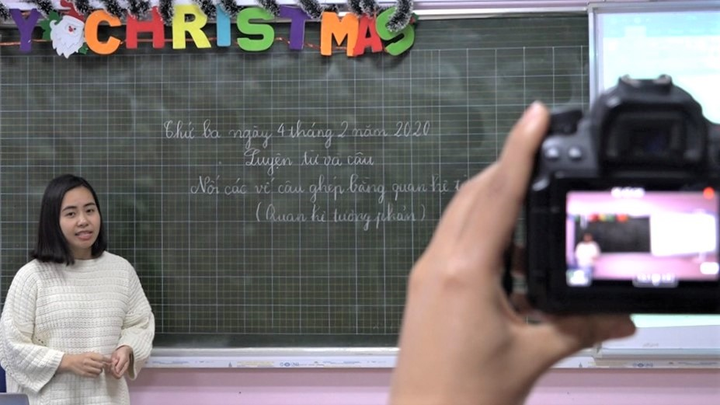 Y CHRISTMAS
Thứ ba ngày 4 tháng 2 năm 2020
Luyện từ và câu
Nối các vế câu ghép bằng quan hệ từ
(Quan hệ tương phản)